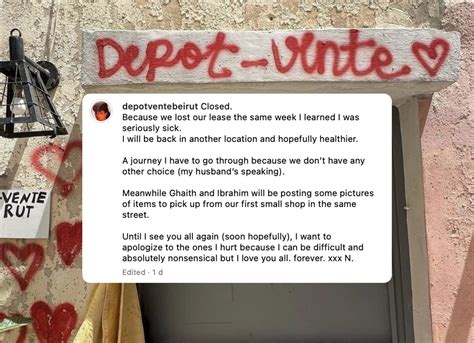 DEPOT-VENTE
-VENTE
RUT
depotventebeirut Closed.
Because we lost our lease the same week I learned I was
seriously sick.
I will be back in another location and hopefully healthier.
A journey I have to go through because we don't have any
other choice (my husband's speaking).
Meanwhile Ghaith and Ibrahim will be posting some pictures
of items to pick up from our first small shop in the same
street.
Until I see you all again (soon hopefully), I want to
apologize to the ones I hurt because I can be difficult and
absolutely nonsensical but I love you all. forever. xxx N.
Edited · 1 d